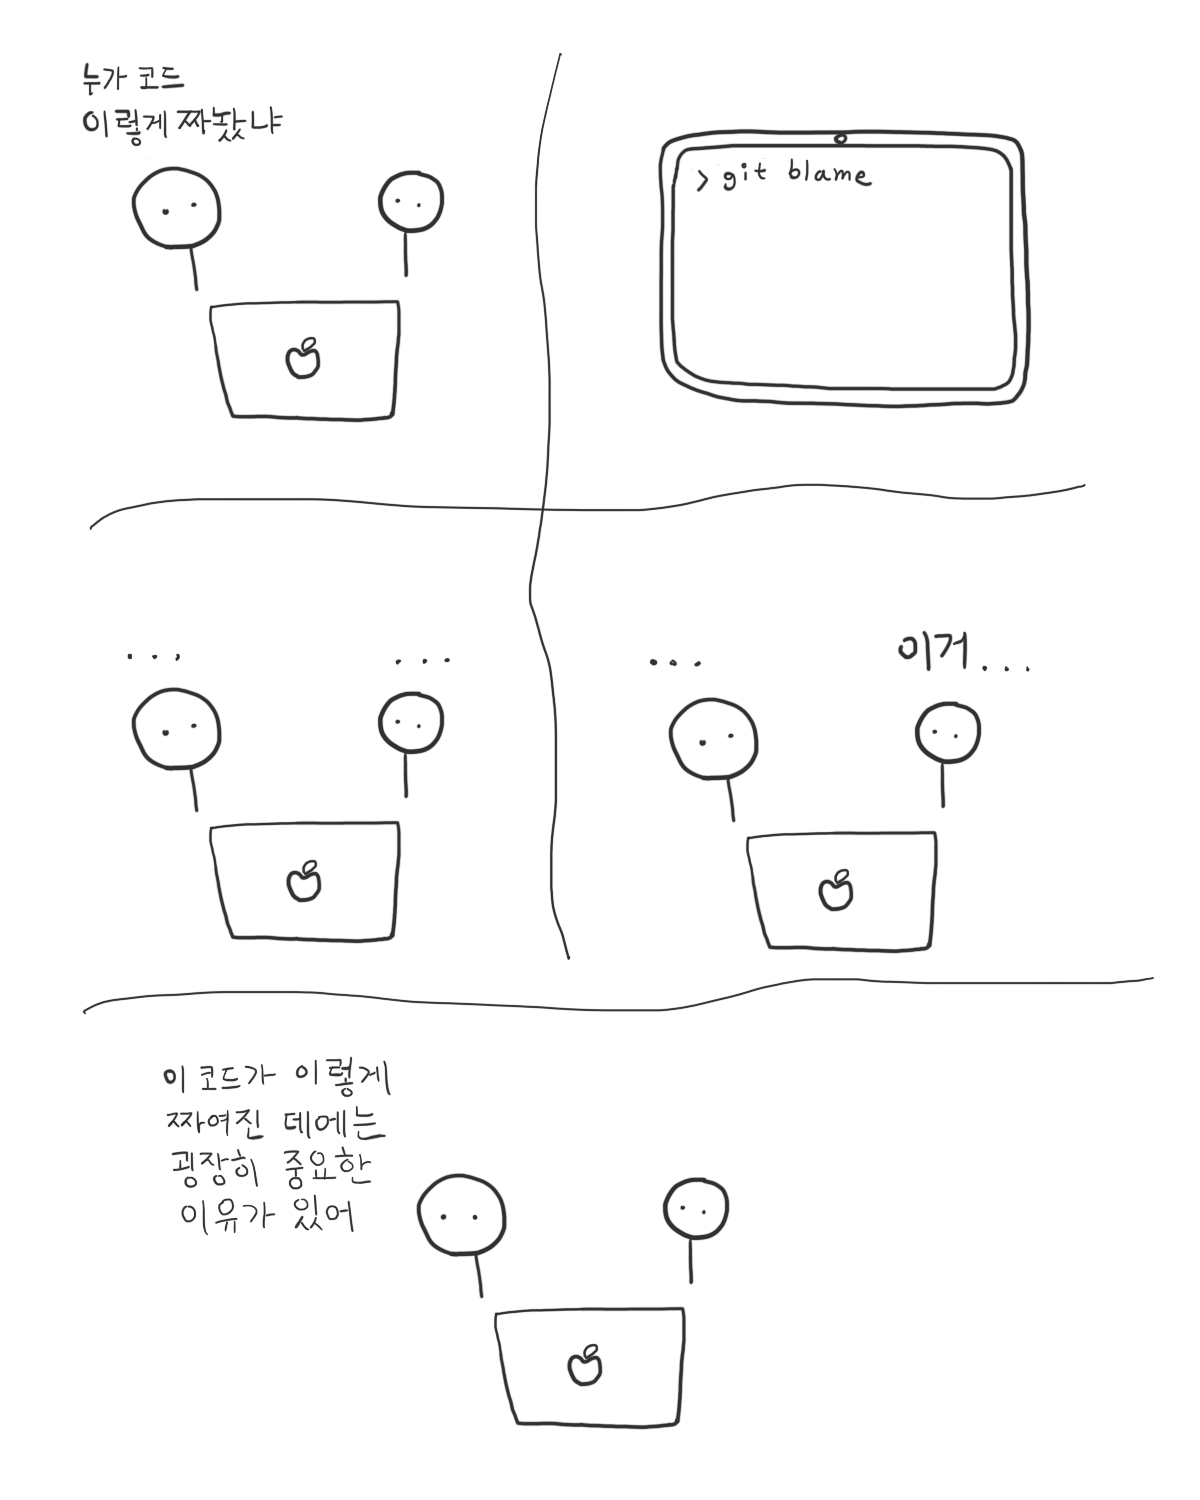 누가 코드
이렇게 짜놨냐
> git blame
...
...
...
이거...
이 코드가 이렇게
짜여진 데에는
굉장히 중요한
이유가 있어